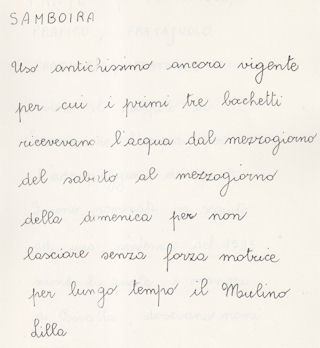 SAMBOIRA
Uso antichissimo ancora vigente
per cui i primi tre bochetti
ricevevano l'acqua dal mezzogiorno
del sabato al mezzogiorno
della domenica per non
lasciare senza forza motrice
per lungo tempo il Mulino
Lilla